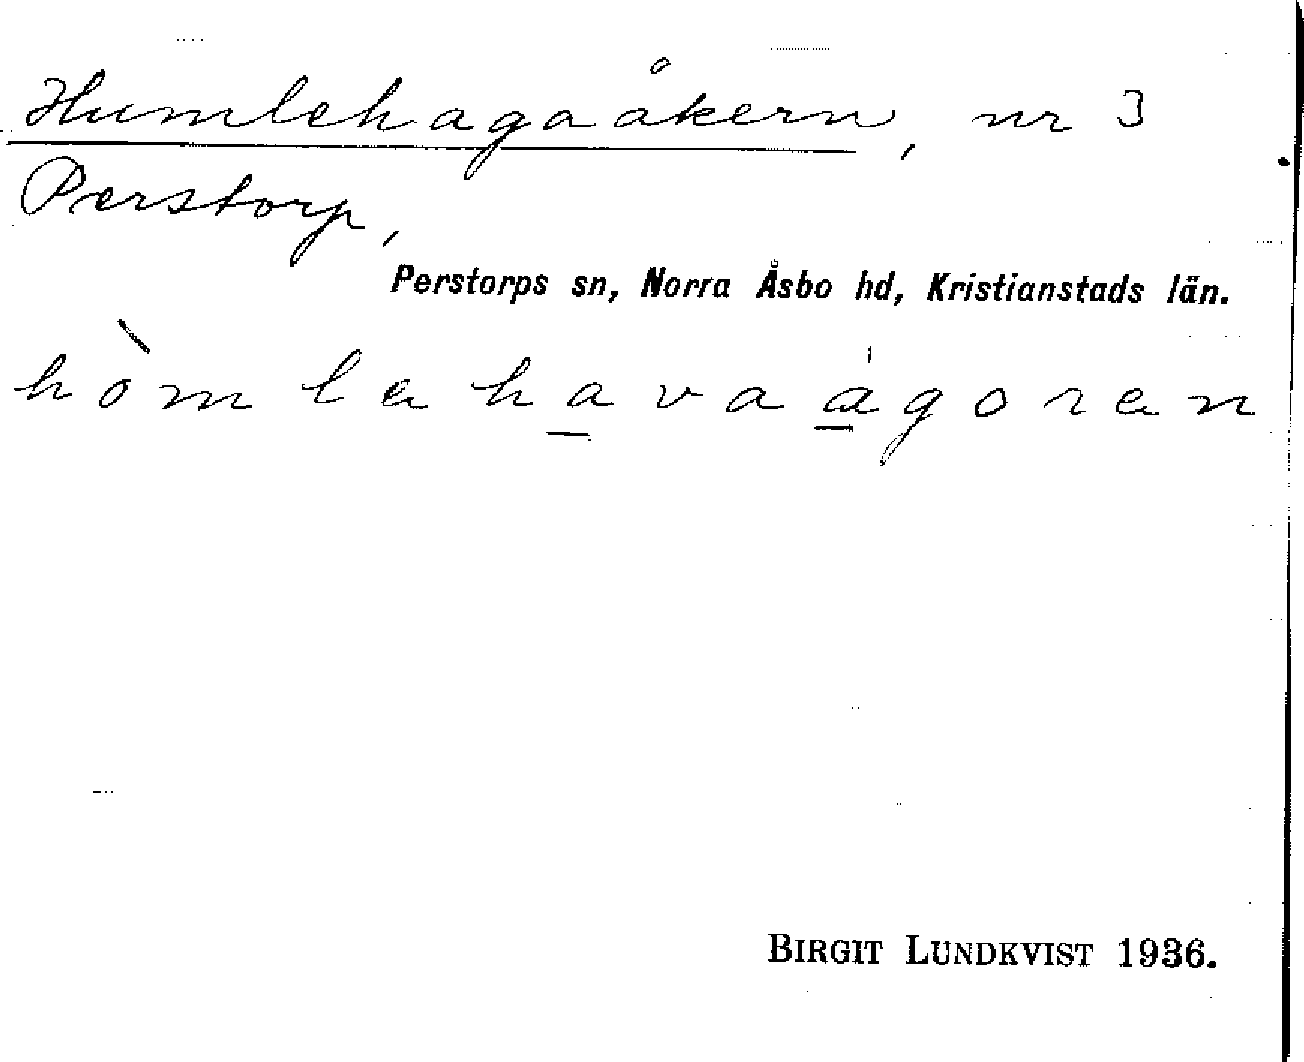 Humlehagaåkern, nr 3
Perstorp,
Perstorps sn, Norra Åsbo hd, Kristianstads län.
hòmlahavaágoran
BIRGIT LUNDKVIST 1936.